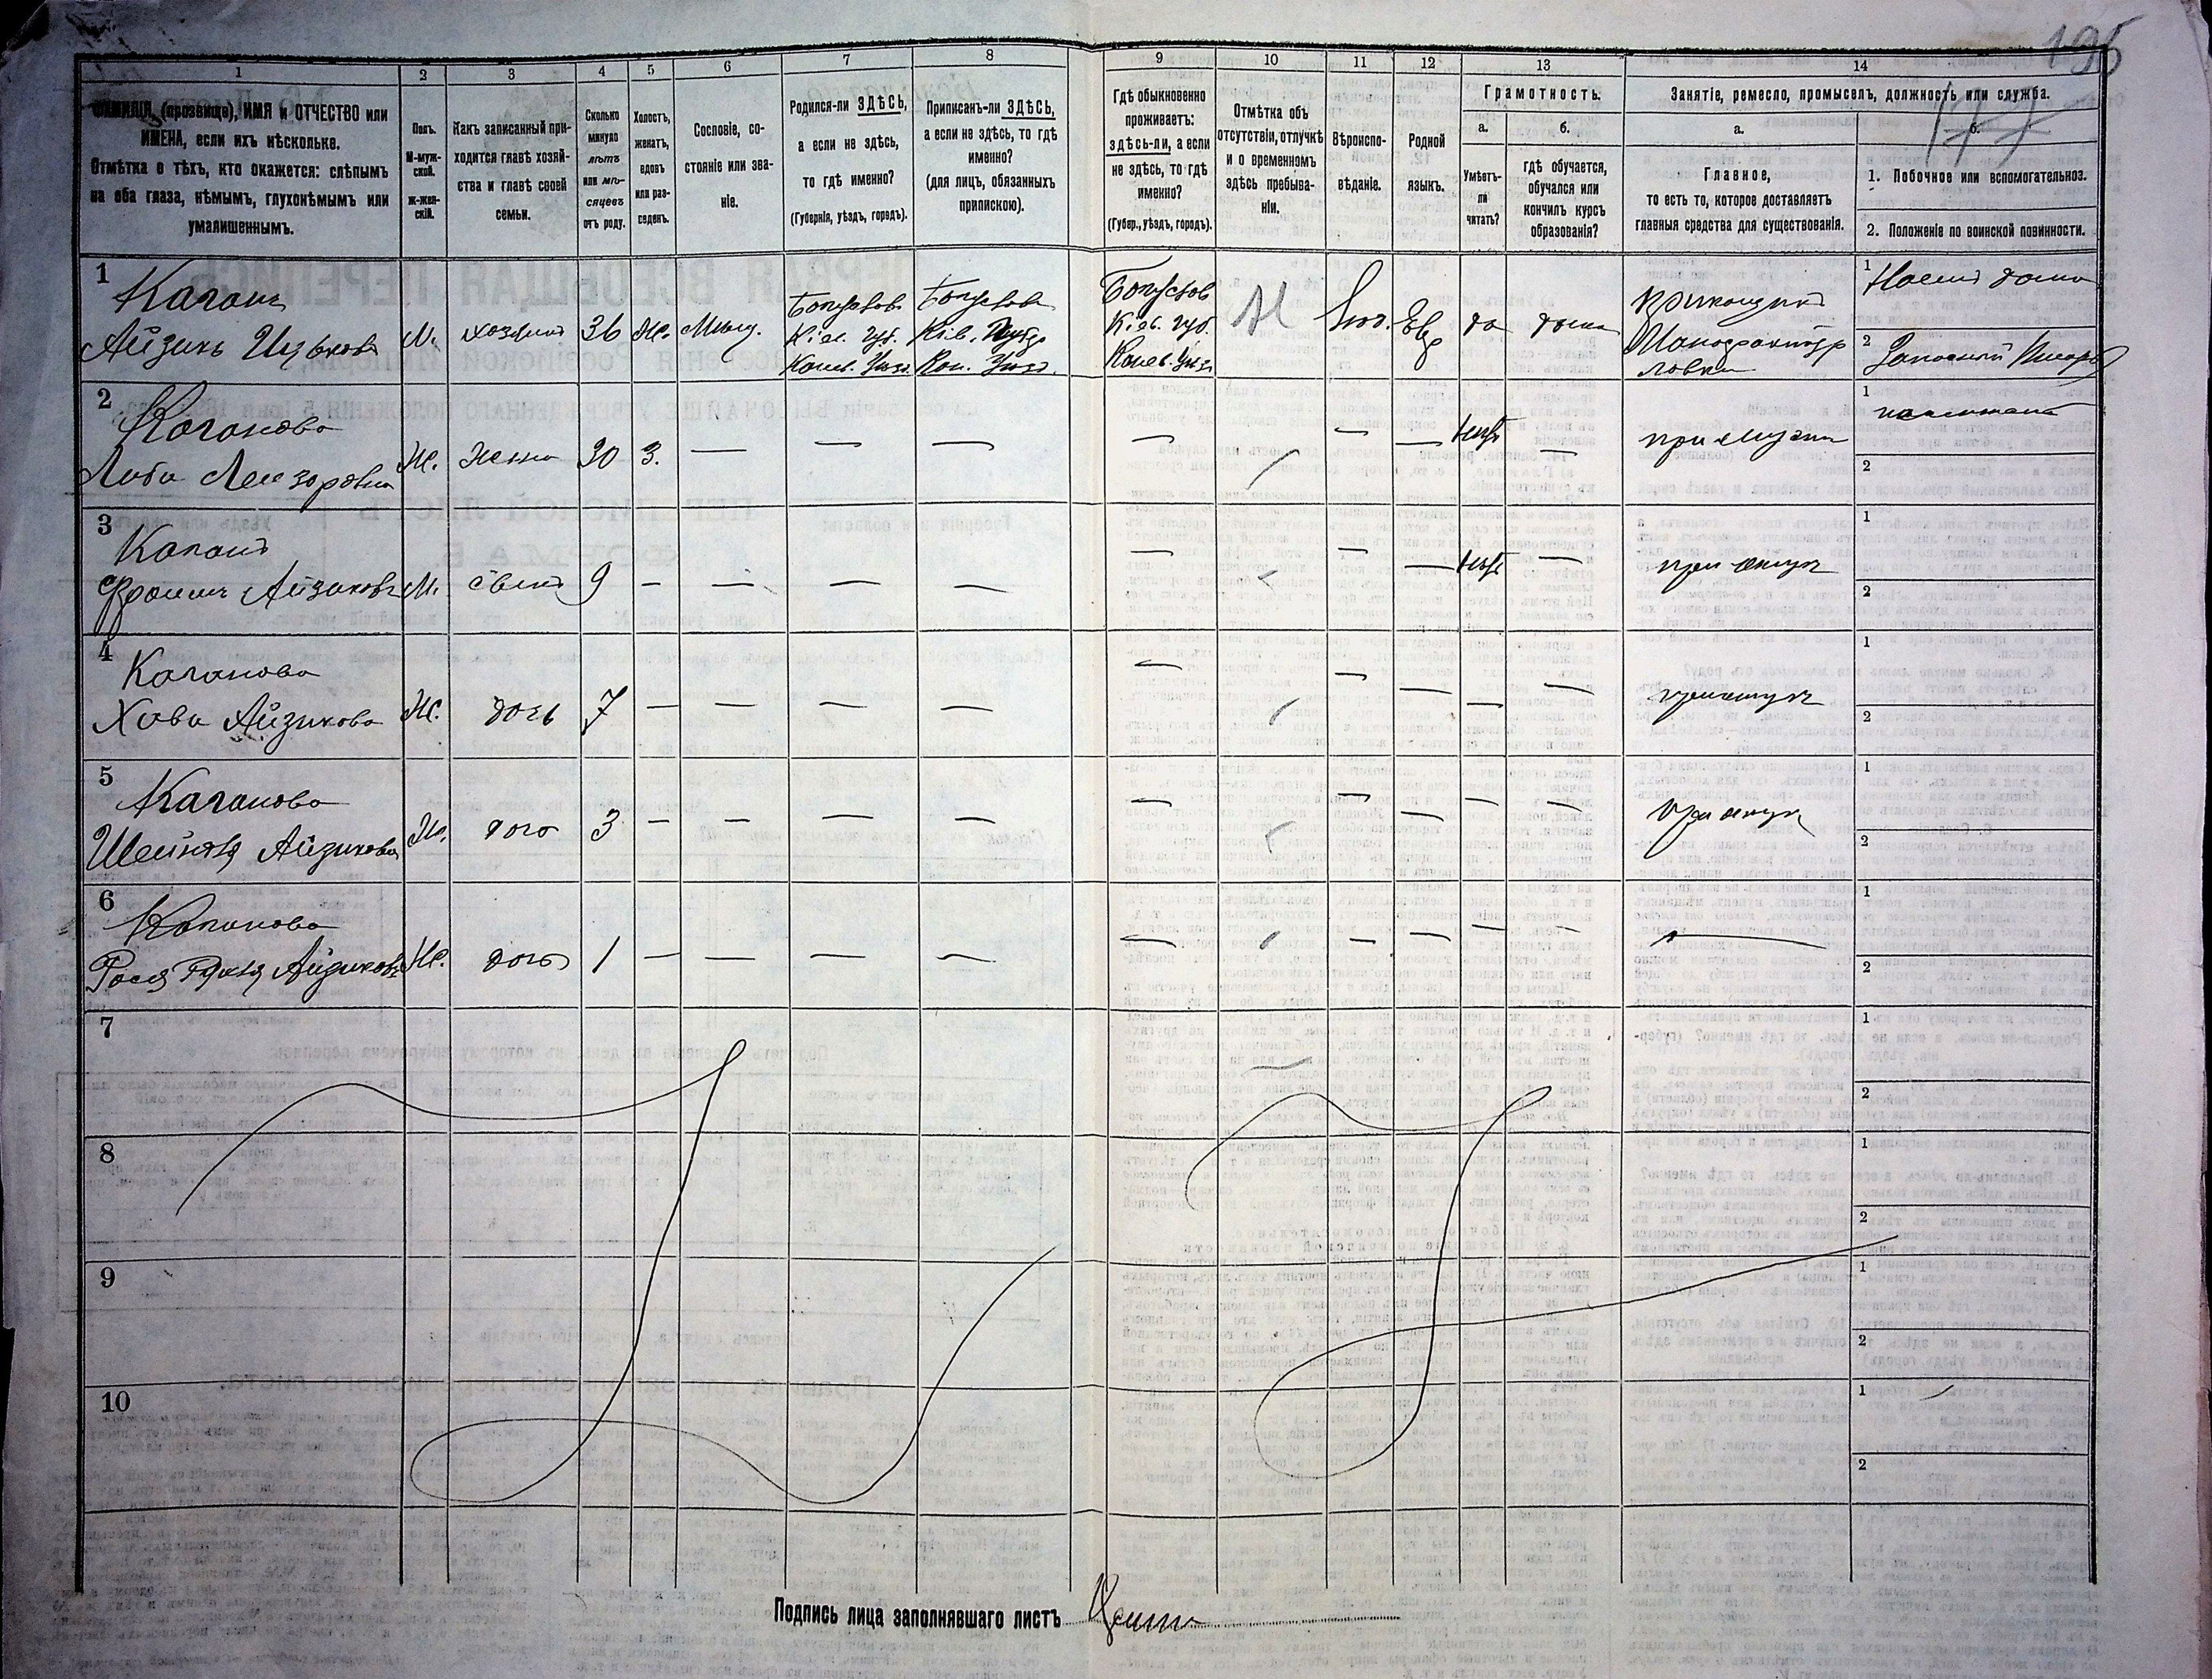 195
177
1
2
3
4
5
6
7
8
9
10
11
12
13
14
ФАМИЛІЯ, (прозвище), ИМЯ и ОТЧЕСТВО или
ИМЕНА, если ихъ нѣсколько.
Отмѣтка о тѣхъ, кто окажется: слѣпымъ
на оба глаза, нѣмымъ, глухонѣмымъ или
умалишеннымъ.
Полъ.
М-муж-
ской.
ж-жен-
скій.
Какъ записанный при-
ходится главѣ хозяй-
ства и главѣ своей
семьи.
Сколько
минуло
лѣтъ
или мѣ-
сяцевъ
отъ роду.
Холостъ,
женатъ,
вдовъ
или раз-
веденъ.
Сословіе, со-
стояніе или зва-
ніе.
Родился-ли ЗДѢСЬ,
а если не здѣсь,
то гдѣ именно?
(Губернія, уѣздъ, городъ).
Приписанъ-ли ЗДѢСЬ,
а если не здѣсь, то гдѣ
именно?
(для лицъ, обязанныхъ
припискою).
Гдѣ обыкновенно
проживаетъ:
здѣсь-ли, а если
не здѣсь, то гдѣ
именно?
(Губер., уѣздъ, городъ).
Отмѣтка объ
отсутствіи, отлучкѣ
и о временномъ
здѣсь пребыва-
ніи.
Вѣроиспо-
вѣданіе.
Родной
языкъ.
Грамотность.
а.
Умѣетъ-
ли
читать?
б.
гдѣ обучается,
обучался или
кончилъ курсъ
образованія?
Занятіе, ремесло, промыселъ, должность или служба.
а.
Главное,
то есть то, которое доставляетъ
главныя средства для существованія.
б.
1. Побочное или вспомогательное.
2. Положеніе по воинской повинности.
1
Каганъ
Айзикъ Ицьковъ
М.
хозяинъ
36
Ж.
Мѣщ.
Богуславъ
Кіев. Губ.
Канев. Уѣзд.
Богуславъ
Кіев. Губ.
Кан. Уѣзд.
Богуслав
Кіев. Губ.
Канев. Уѣзд.
Іюд.
Евр
да
дома
Прикащикъ
Мануфактур
лавки
1 Наемъ дома
2 Запасный
2
Каганова
Лейзоровна
Ж.
Жена
30
З.
—
—
—
—
—
—
нѣтъ
—
при мужѣ
1
2
3
Каганъ
Фроимъ Айзиковъ
М.
сынъ
9
—
—
—
—
—
—
—
нѣтъ
—
при отцѣ
1
2
4
Каганова
Хава Айзикова
Ж.
дочь
7
—
—
—
—
—
—
—
—
—
при отцѣ
1
2
5
Каганова
Шейндля Айзикова
Ж.
дочь
3
—
—
—
—
—
—
—
—
—
при отцѣ
1
2
6
Каганова
Рося Айзикова
Ж.
дочь
1
—
—
—
—
—
—
—
—
—
—
1
2
7
1
2
8
1
2
9
1
2
10
1
2
Подпись лица заполнявшаго листъ